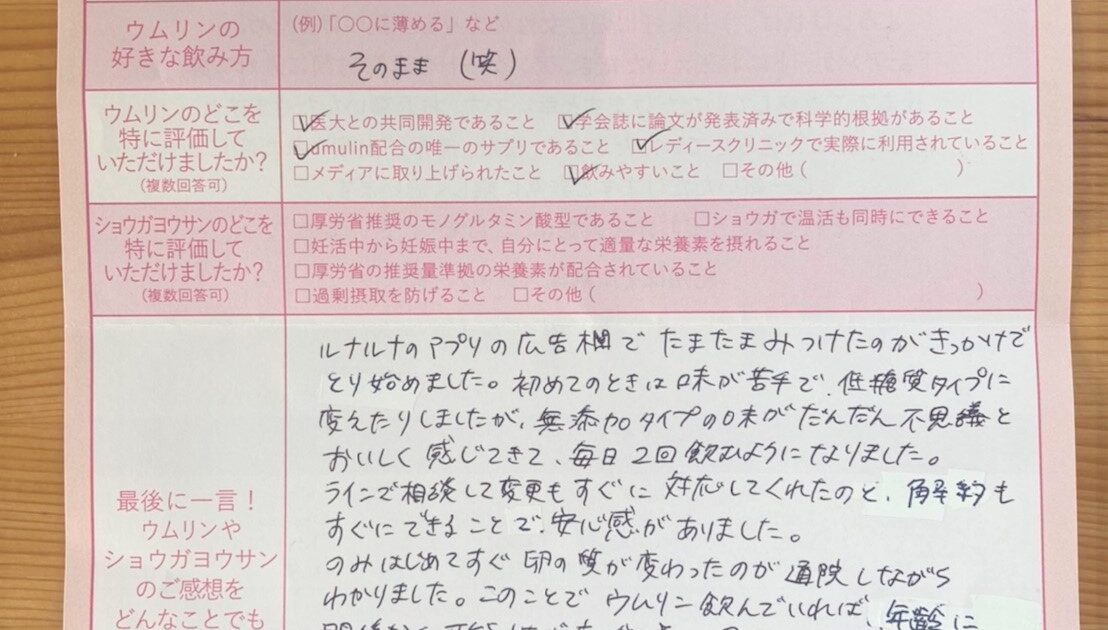 ウムリンの
好きな飲み方
(例)「〇〇に薄める」など
そのまま (笑)
ウムリンのどこを
特に評価して
いただけましたか?
(複数回答可)
☑医大との共同開発であること ☑学会誌に論文が発表済みで科学的根拠があること
☑umulin配合の唯一のサプリであること ☑レディースクリニックで実際に利用されていること
□メディアに取り上げられたこと ☑飲みやすいこと □その他( )
ショウガヨウサンのどこを
特に評価して
いただけましたか?
(複数回答可)
□厚労省推奨のモノグルタミン酸型であること □ショウガで温活も同時にできること
□妊活中から妊娠中まで、自分にとって適量な栄養素を摂れること
□厚労省の推奨量準拠の栄養素が配合されていること
□過剰摂取を防げること □その他( )
最後に一言!
ウムリンや
ショウガヨウサン
のご感想を
どんなことでも
ルナルナのアプリの広告欄でたまたまみつけたのがきっかけで
とり始めました。初めてのときは味が苦手で、低糖質タイプに
変えたりしましたが、無添加タイプの味がだんだん不思議と
おいしく感じてきて、毎日2回飲むようになりました。
ラインで相談して変更もすぐに対応してくれたのと、解約も
すぐにできることで、安心感がありました。
のみはじめてすぐ卵の質が変わったのが通院しながら
わかりました。このことでウムリン飲んでいれば、年齢に